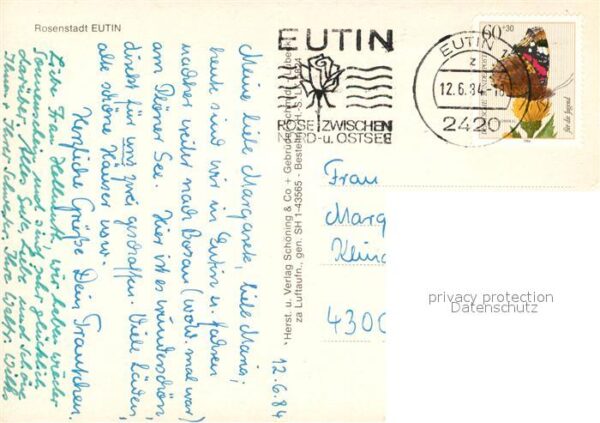 Rosenstadt EUTIN
EUTIN
ROSE ZWISCHEN
NORD-u. OSTSEE
EUTIN 1
z
12.6.84-18
2420
60+30
für die Jugend
Herst. u. Verlag Schöning & Co + Gebrüder Schmidt, Lübeck
za Luftaufn., gen. SH 1-43565 - Bestell
12.6.84
Meine liebe Margarete, liebe Maria,
heute sind wir in Eutin u. fahren
nachher weiter nach Bosau (wo W. mal war)
am Plöner See. Hier ist es wunderschön,
direkt für uns zwei geschaffen. Viele Läden,
alte schöne Häuser usw.
Herzliche Grüße Dein Trautchen.
Liebe Frau Hellmuth, wir haben wieder
Sonnenschein und sind sehr glücklich
darüber. Alles Gute, Liebe und Schöne
Ihnen u. Ihrer Schwester. Ihre
Frau
Marg
Klein
4300
privacy protection
Datenschutz